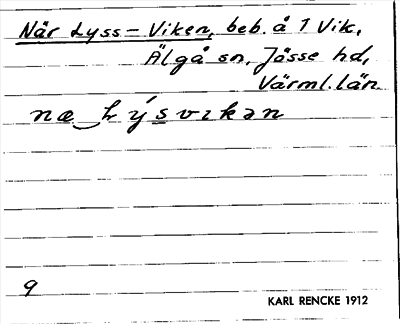 När Lyss-Viken, beb. å 1 Vik,
Älgå sn, Jösse hd,
Värml. län
næ Lýsvıkən
9
KARL RENCKE 1912